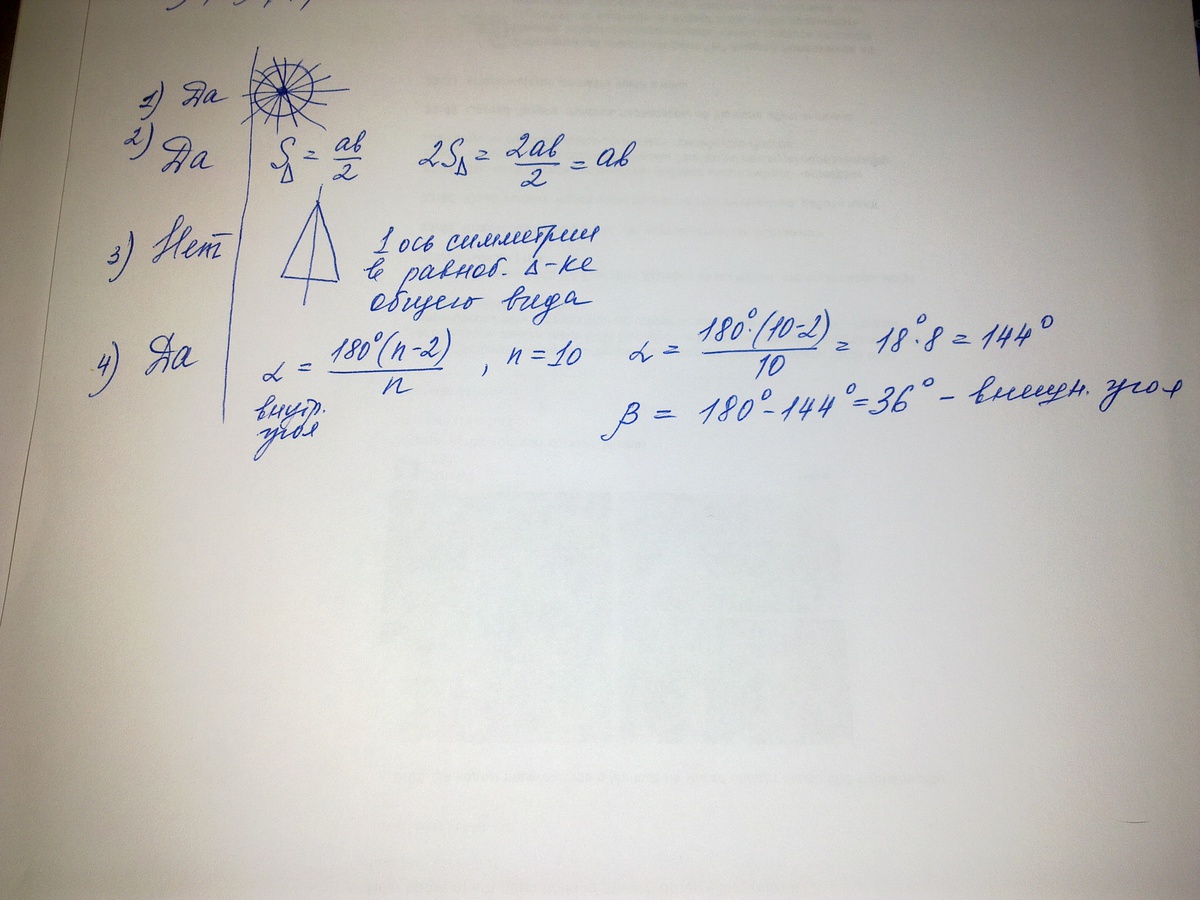 1) Да
2) Да S△ = ав/2 2S△ = 2ав/2 = ав
3) Нет 1 ось симметрии
в равноб. △-ке
общего вида
4) Да α = 180°(n-2)/n , n = 10 α = 180°·(10-2)/10 = 18°·8 = 144°
внутр.
угол
β = 180° - 144° = 36° - внешн. угол